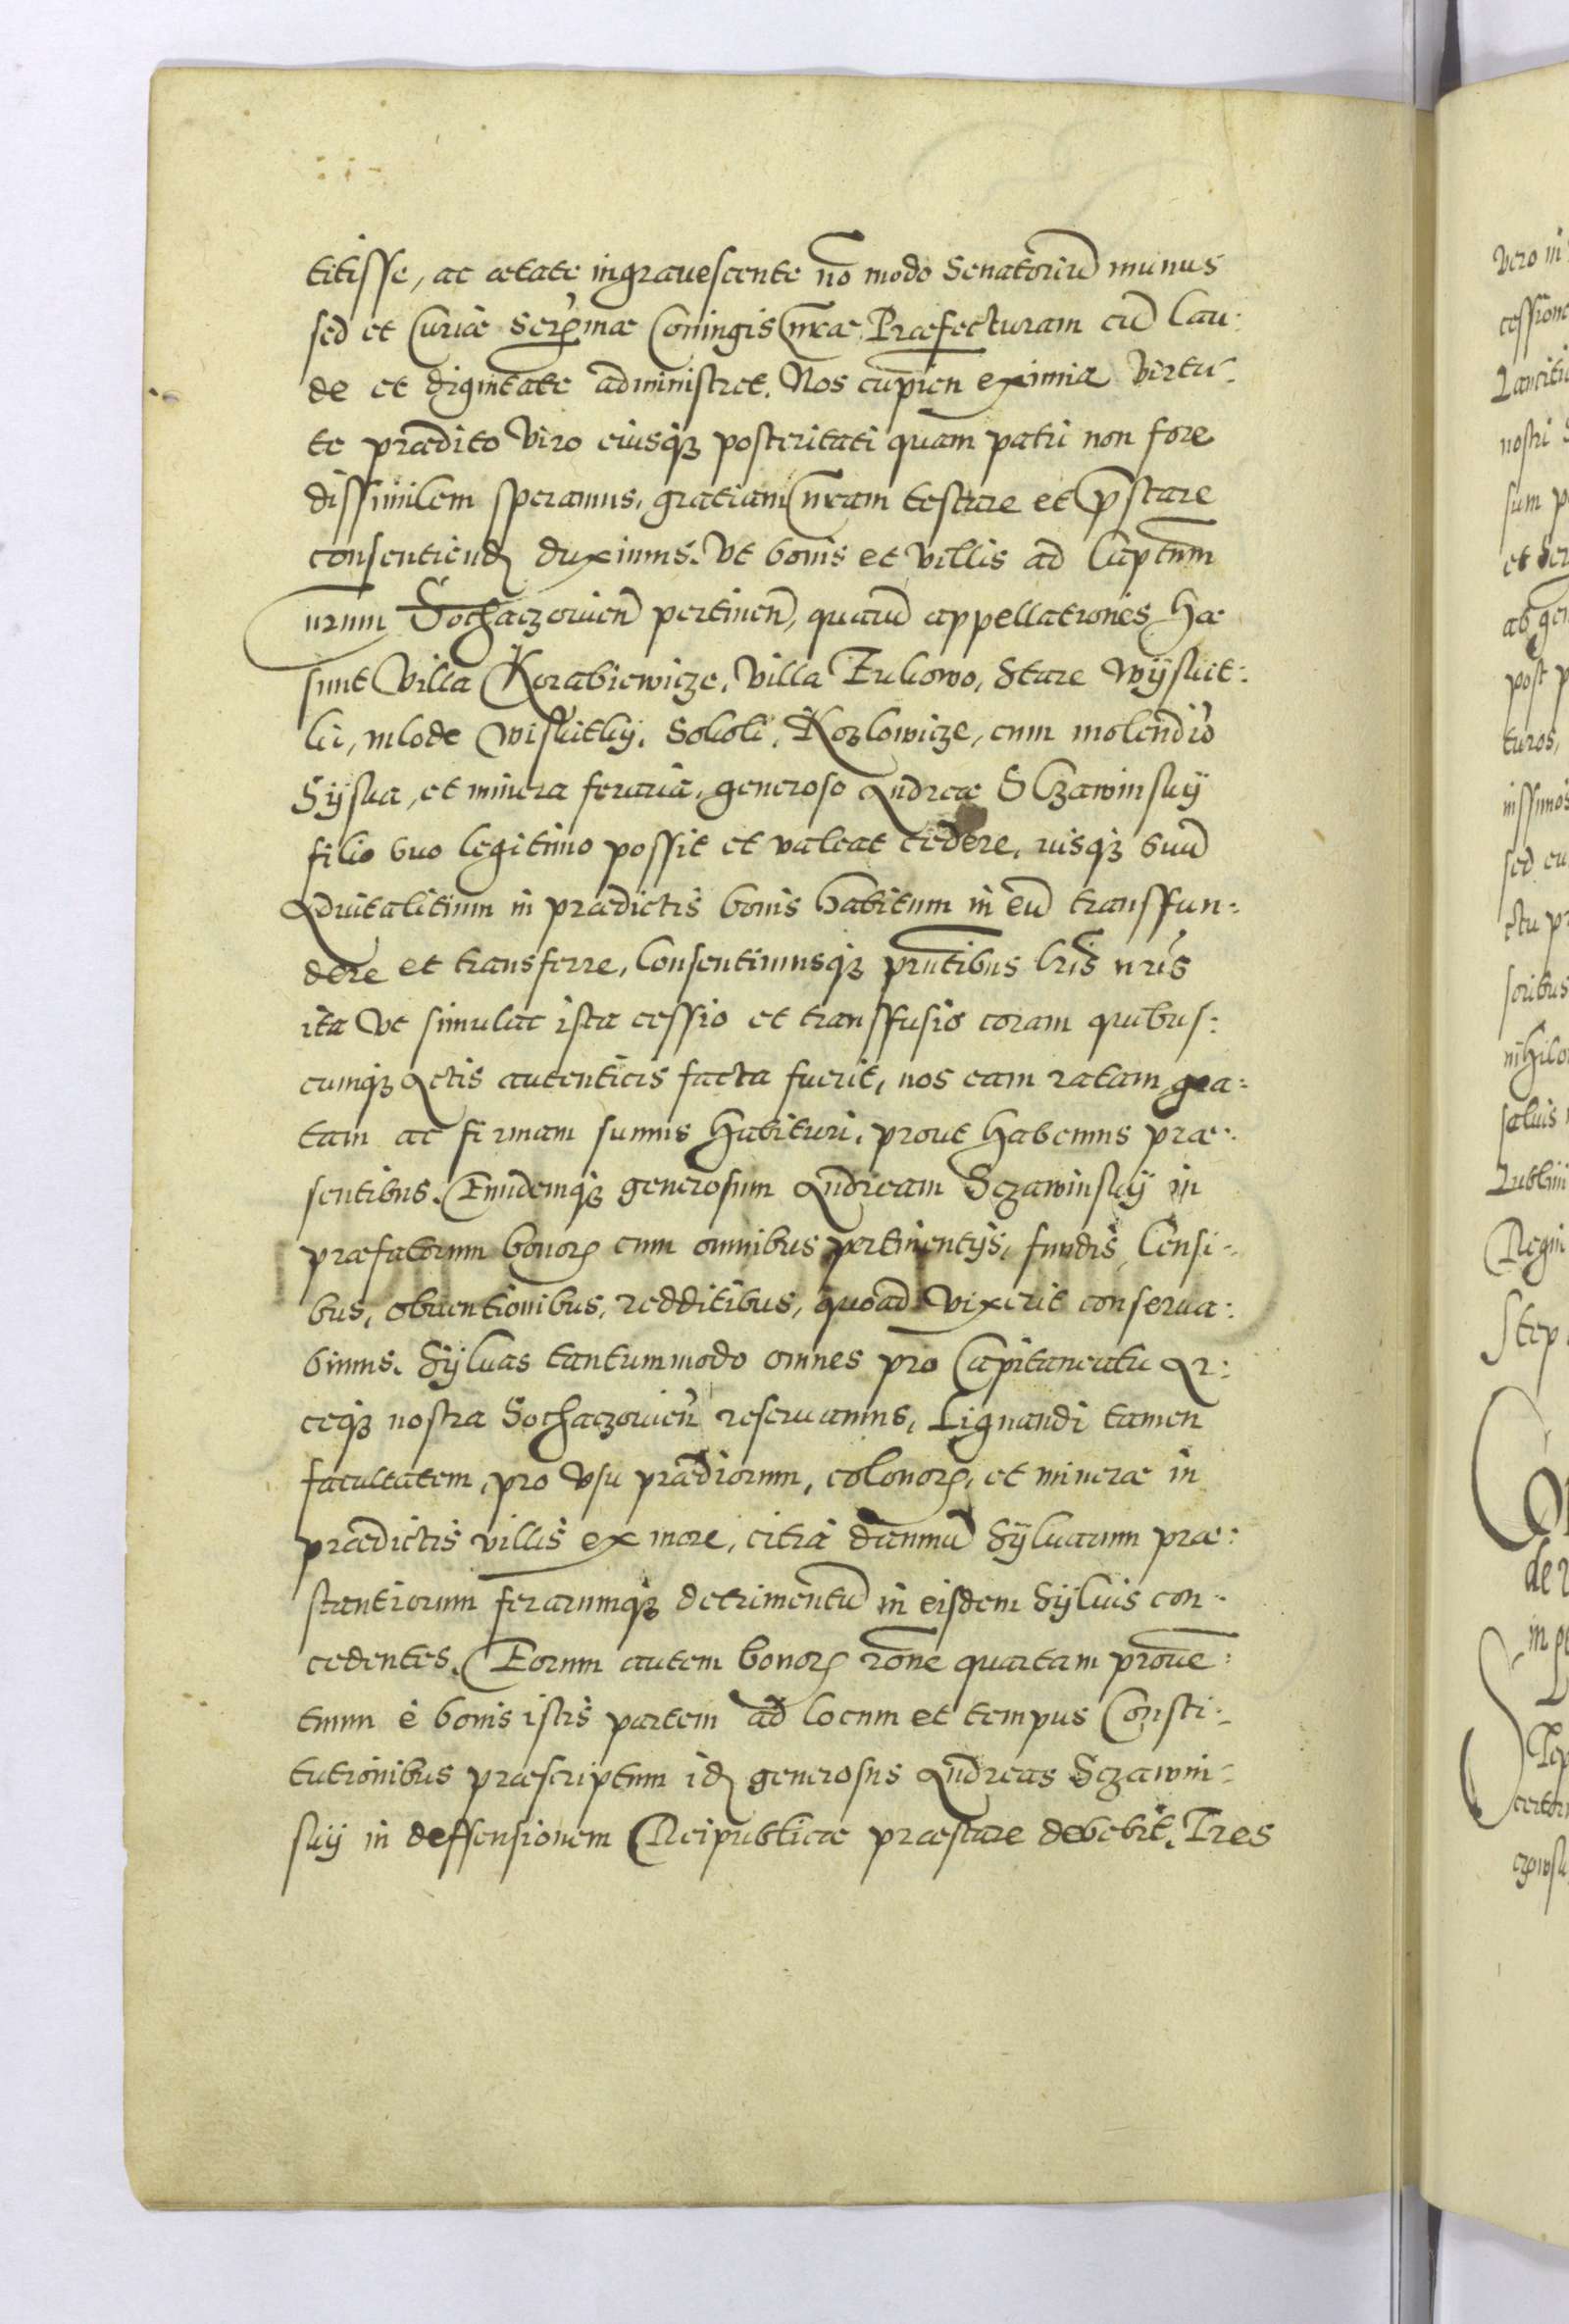 titisse, ac ætate ingrauescente nō modo Senatoriū munus
sed et Curiæ Serm̃æ Coniugis nr̃æ Præfecturam cū lau:
de et dignitate administret. Nos cupien̄ eximia virtu:
te prædito Viro eiusq; posteritati quam patri non fore
dissimilem speramus, gratiam nr̃am testare et p̄stare
consentiend duximus. Vt bonis et villis ad Capt̄um
nr̄um Sochaczouien̄ pertinen̄, quarū appellationes hæ
sunt Villa Korabiewicze, Villa Lukowo, Stare Wyskit:
ki, mlode Wiskitky, Sokoli, Kozlowicze, cum molendio
Syska, et minera feraria, generoso Andreæ Sczawinsky
filio suo legitimo possit et valeat cedere, iusq; suū
Aduitalitium in prædictis bonis habitum in eū transffun:
dere et transferre, Consentimusq; pn̄tibus lr̄is nr̄is
ita vt simulac ista cessio et transffusio coram quibus:
cumq; Actis autenticis facta fuerit, nos eam ratam gra:
tam ac firmam sumus habituri, prout habemus præ:
sentibus. Eundemq; generosum Andream Sczawinsky in
præfatorum bonor cum omnibus pertinentijs, fundis, Censi:
bus, obuentionibus, redditibus, quoad vixerit conserua:
bimus. Syluas tantummodo omnes pro Capitaneatu Ar:
ceq; nostra Sochaczouien̄ reseruamus, Lignandi tamen
facultatem, pro vsu prædiorum, colonor, et mineræ in
prædictis villis ex more, citra damnū Syluarum præ:
stantiorum ferarumq; detrimentū in eisdem Syluis con:
cedentes. Eorum autem bonor rōne quartam proue:
tuum è bonis istis partem ad locum et tempus Consti:
tutionibus præscriptum id generosus Andreas Sczawin:
sky in deffensionem Reipublicæ præstare debebit. Tres